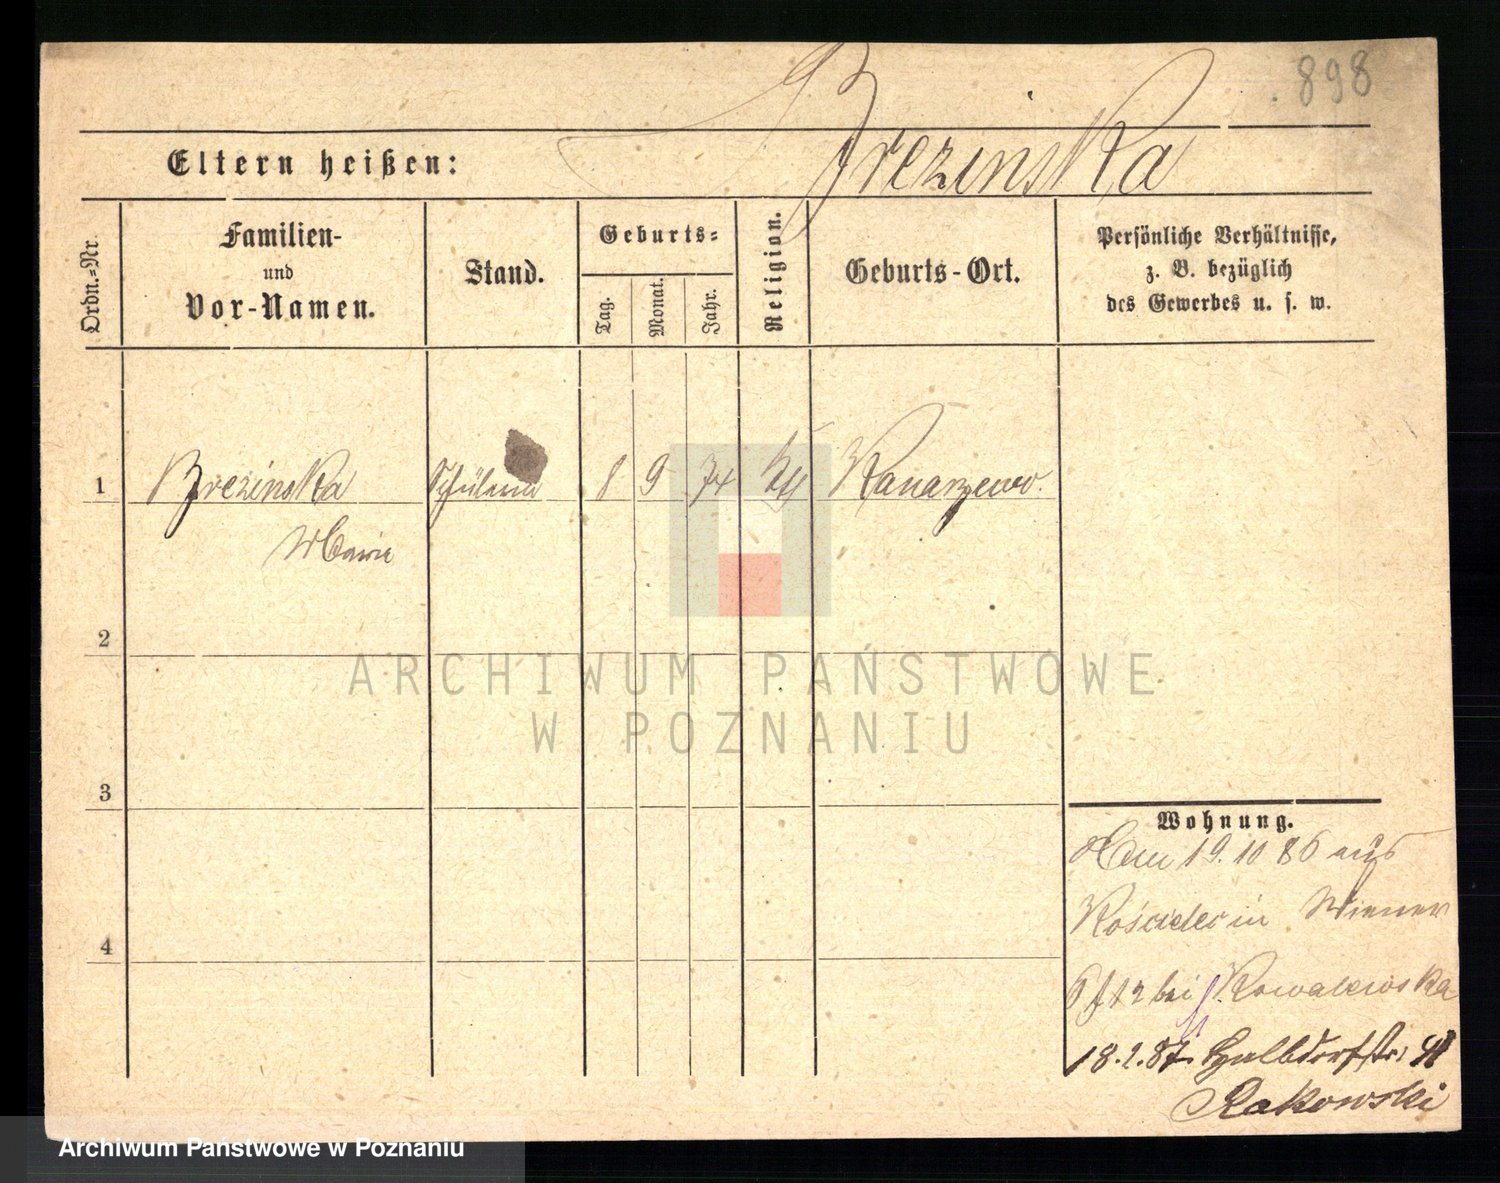 898
Brezinska
Eltern heißen:
Ordn.=Nr.
Familien-
und
Vor-Namen.
Stand.
Geburts=
Tag.
Monat.
Jahr.
Religion.
Geburts-Ort.
Persönliche Verhältnisse,
z. B. bezüglich
des Gewerbes u. s. w.
1 Brezinska Schülerin 8 9 74 kth Kanarzewo.
Marie
2
ARCHIWUM PAŃSTWOWE
W POZNANIU
3
Wohnung.
19.10 86 aus
in Wiener
bei Kowalewska
18.2.87. Halbdorfstr.
4
Rakowski
Archiwum Państwowe w Poznaniu